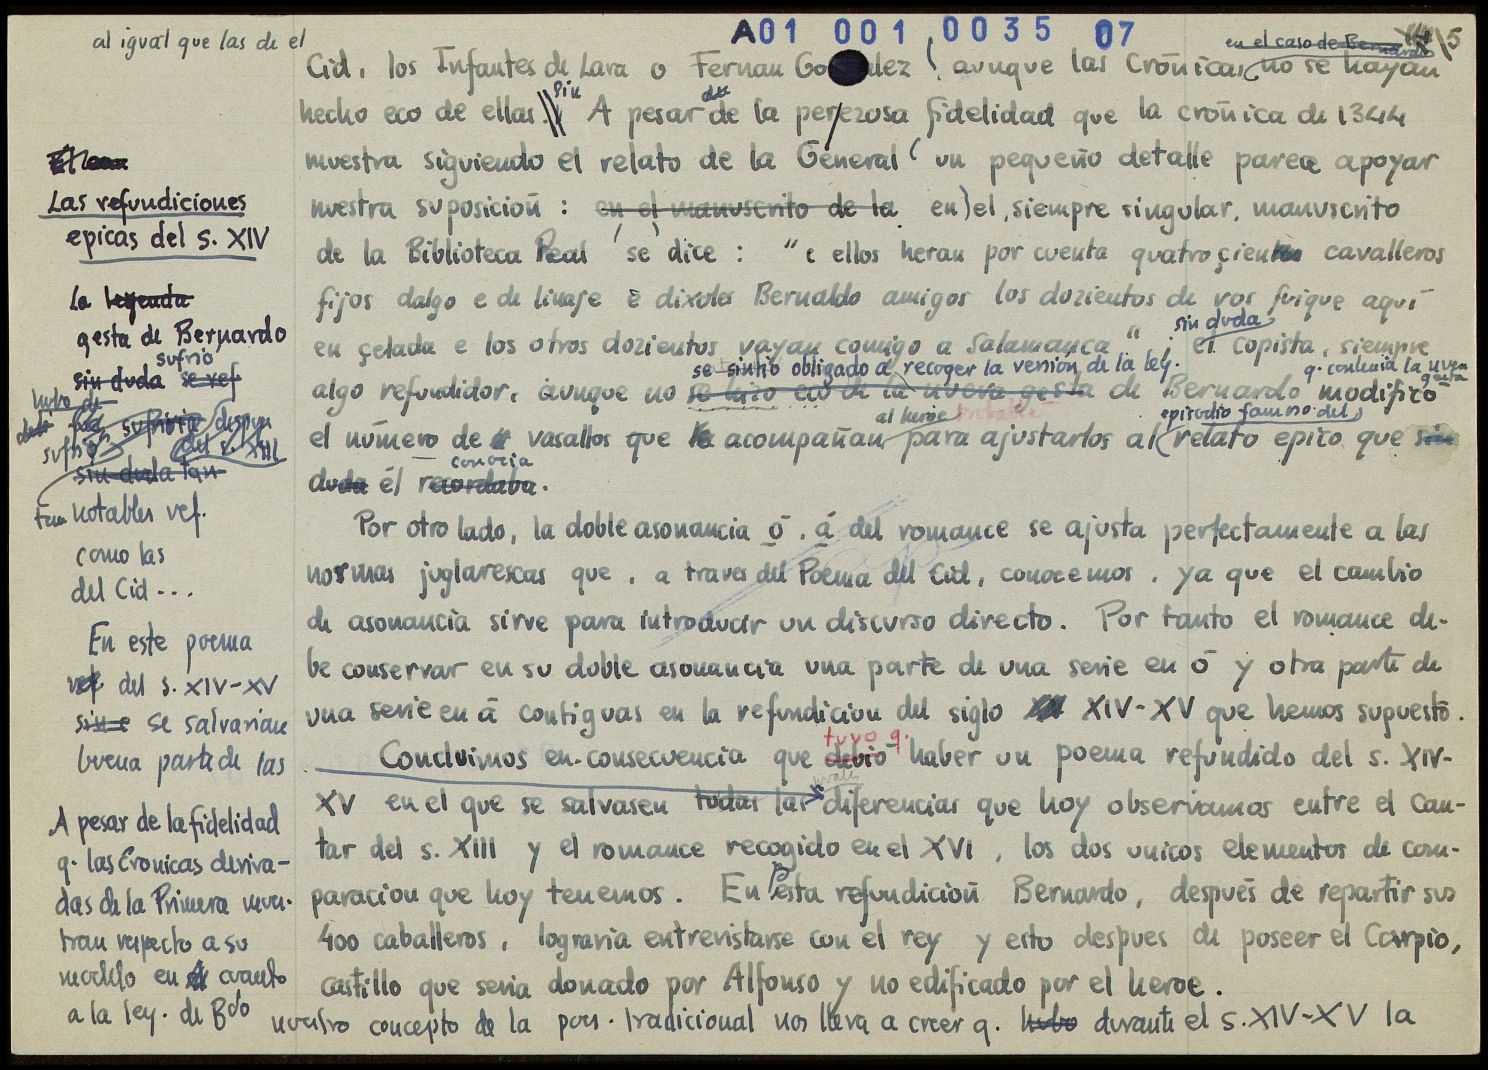 A01 001 0035 07
al igual que las de el
en el caso de Bernardo
5
Cid, los Infantes de Lara o Fernan Gonzalez (aunque las Crónicas no se hayan
hecho eco de ellas. Sin A pesar de la perezosa fidelidad que la crónica de 1344
muestra siguiendo el relato de la General (un pequeño detalle parece apoyar
nuestra suposición : en el manuscrito de la en) el, siempre singular, manuscrito
de la Biblioteca Real se dice : "e ellos heran por cuenta quatroçientos cavalleros
fijos dalgo e de linaje e dixoles Bernaldo amigos los dozientos de vos finque aquí
en çelada e los otros dozientos vayan comigo a Salamanca" ; el copista, siempre
sin duda
se sintió obligado a recoger la versión de la ley. q. contenia la nueva gesta
algo refundidor, aunque no se hizo eco de la nueva gesta de Bernardo modificó
al heroe
episodio famoso del
el número de vasallos que le acompañan para ajustarlos al relato epico que sin
conocia
duda él recordaba.
Por otro lado, la doble asonancia ó, á del romance se ajusta perfectamente a las
normas juglarescas que, a traves del Poema del Cid, conocemos, ya que el cambio
de asonancia sirve para introducir un discurso directo. Por tanto el romance de-
be conservar en su doble asonancia una parte de una serie en ó y otra parte de
una serie en á contiguas en la refundicion del siglo XIV-XV que hemos supuesto.
tuvo q.
Concluimos en consecuencia que debió haber un poema refundido del s. XIV-
XV en el que se salvasen todas las diferencias que hoy observamos entre el Can-
tar del s. XIII y el romance recogido en el XVI, los dos unicos elementos de com-
paracion que hoy tenemos. En esta refundición Bernardo, después de repartir sus
400 caballeros, lograria entrevistarse con el rey y esto despues de poseer el Carpio,
castillo que seria donado por Alfonso y no edificado por el heroe.
nuestro concepto de la poes. tradicional nos lleva a creer q. hubo durante el s. XIV-XV la
Las refundiciones
epicas del s. XIV
La leyenda
gesta de Bernardo
sufrió
sin duda se ref
hubo de
sufriria despues
sufrió del s. XIII
sin duda tan
tan notables ref.
como las
del Cid...
En este poema
ref del s. XIV-XV
se salvarian
buena parte de las
A pesar de la fidelidad
q. las Cronicas deriva-
das de la Primera mues-
tran respecto a su
modelo en cuanto
a la ley. de Bdo